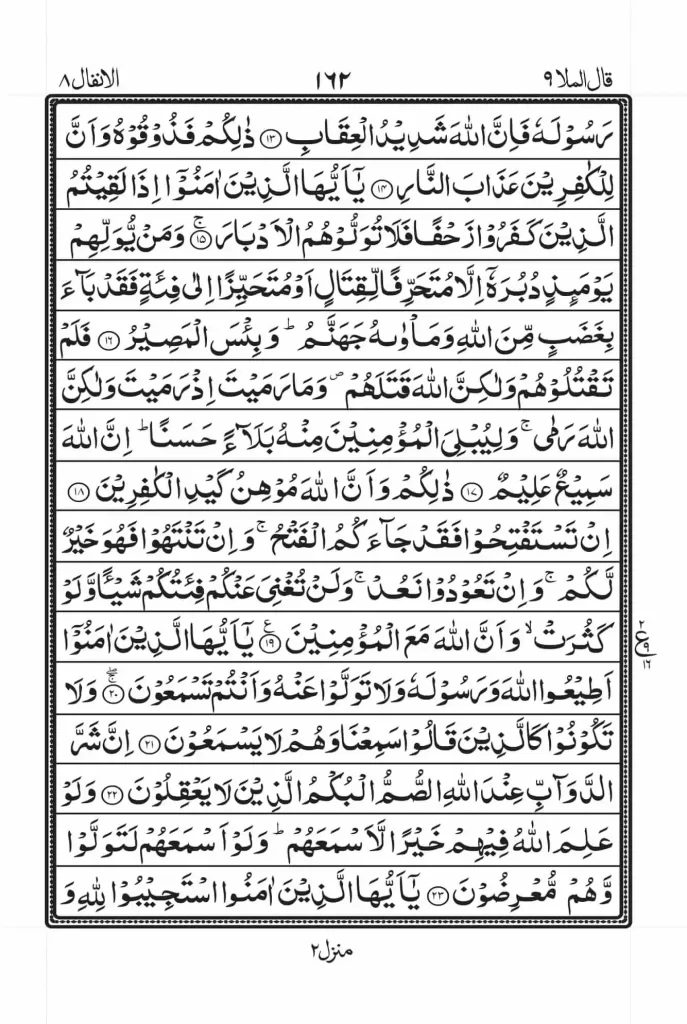 قال الملا ۹ ۱۶۲ الانفال ۸
رَسُوۡلَهٗ فَاِنَّ اللّٰهَ شَدِيۡدُ الۡعِقَابِ ﴿۱۳﴾ ذٰلِكُمۡ فَذُوۡقُوۡهُ وَاَنَّ
لِلۡكٰفِرِيۡنَ عَذَابَ النَّارِ ﴿۱۴﴾ يٰۤاَيُّهَا الَّذِيۡنَ اٰمَنُوۡۤا اِذَا لَقِيۡتُمُ
الَّذِيۡنَ كَفَرُوۡا زَحۡفًا فَلَا تُوَلُّوۡهُمُ الۡاَدۡبَارَ ﴿۱۵﴾ۚ وَمَنۡ يُّوَلِّهِمۡ
يَوۡمَٮِٕذٍ دُبُرَهٗۤ اِلَّا مُتَحَرِّفًا لِّقِتَالٍ اَوۡ مُتَحَيِّزًا اِلٰى فِئَةٍ فَقَدۡ بَآءَ
بِغَضَبٍ مِّنَ اللّٰهِ وَمَاۡوٰٮهُ جَهَنَّمُ‌ؕ وَبِئۡسَ الۡمَصِيۡرُ ﴿۱۶﴾ فَلَمۡ
تَقۡتُلُوۡهُمۡ وَلٰكِنَّ اللّٰهَ قَتَلَهُمۡ‌ۖ وَمَا رَمَيۡتَ اِذۡ رَمَيۡتَ وَلٰكِنَّ
اللّٰهَ رَمٰى‌ۚ وَلِيُبۡلِىَ الۡمُؤۡمِنِيۡنَ مِنۡهُ بَلَآءً حَسَنًا‌ؕ اِنَّ اللّٰهَ
سَمِيۡعٌ عَلِيۡمٌ ﴿۱۷﴾ ذٰلِكُمۡ وَاَنَّ اللّٰهَ مُوۡهِنُ كَيۡدِ الۡكٰفِرِيۡنَ ﴿۱۸﴾
اِنۡ تَسۡتَفۡتِحُوۡا فَقَدۡ جَآءَكُمُ الۡفَتۡحُ‌ۚ وَاِنۡ تَنۡتَهُوۡا فَهُوَ خَيۡرٌ
لَّكُمۡ‌ۚ وَاِنۡ تَعُوۡدُوۡا نَعُدۡ‌ۚ وَلَنۡ تُغۡنِىَ عَنۡكُمۡ فِئَتُكُمۡ شَيۡـًٔـا وَّلَوۡ
كَثُرَتۡۙ وَاَنَّ اللّٰهَ مَعَ الۡمُؤۡمِنِيۡنَ ﴿۱۹﴾ع يٰۤاَيُّهَا الَّذِيۡنَ اٰمَنُوۡۤا
۲ ع ۹ ۱۶
اَطِيۡعُوا اللّٰهَ وَرَسُوۡلَهٗ وَلَا تَوَلَّوۡا عَنۡهُ وَاَنۡتُمۡ تَسۡمَعُوۡنَ ﴿۲۰﴾ۖۚ وَلَا
تَكُوۡنُوۡا كَالَّذِيۡنَ قَالُوۡا سَمِعۡنَا وَهُمۡ لَا يَسۡمَعُوۡنَ ﴿۲۱﴾ اِنَّ شَرَّ
الدَّوَآبِّ عِنۡدَ اللّٰهِ الصُّمُّ الۡبُكۡمُ الَّذِيۡنَ لَا يَعۡقِلُوۡنَ ﴿۲۲﴾ وَلَوۡ
عَلِمَ اللّٰهُ فِيۡهِمۡ خَيۡرًا لَّاَسۡمَعَهُمۡ‌ؕ وَلَوۡ اَسۡمَعَهُمۡ لَتَوَلَّوۡا
وَّهُمۡ مُّعۡرِضُوۡنَ ﴿۲۳﴾ يٰۤاَيُّهَا الَّذِيۡنَ اٰمَنُوا اسۡتَجِيۡبُوۡا لِلّٰهِ وَ
منزل ۲